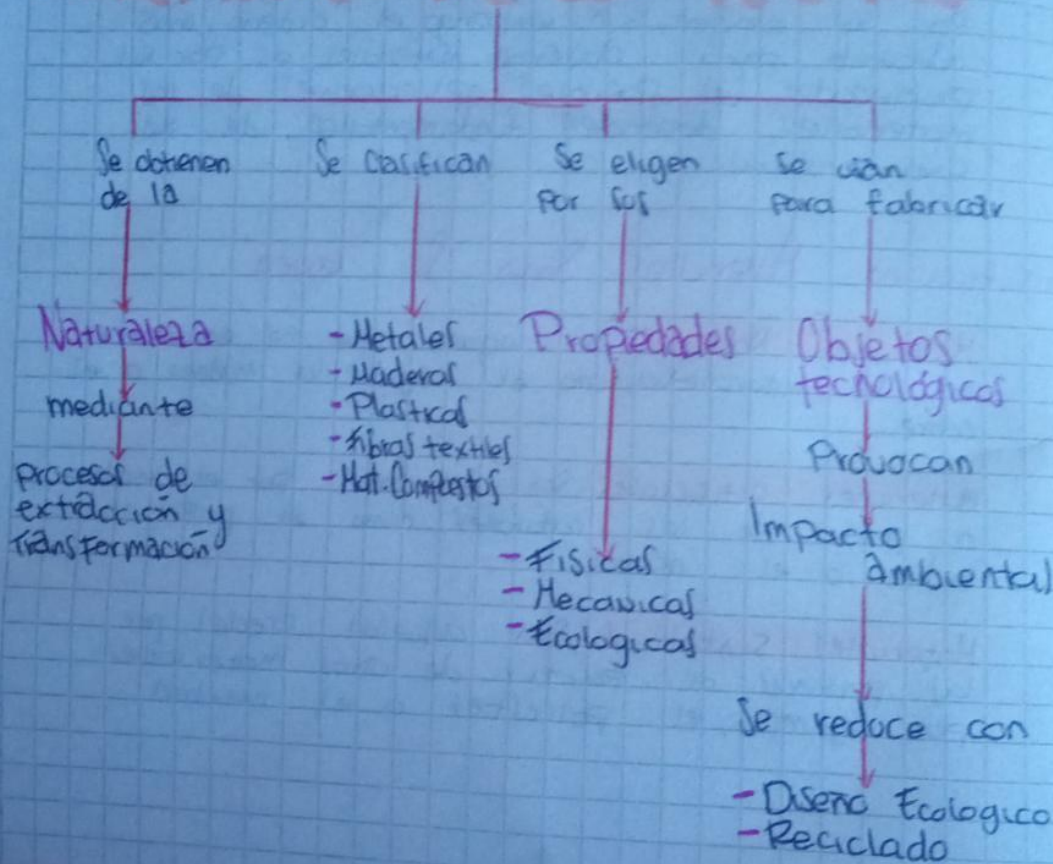 Se obtienen
de la
Naturaleza
mediante
procesos de
extracción y
Transformación
Se clasifican
- Metales
- Maderas
- Plasticos
- fibras textiles
- Mat. Compuestos
Se eligen
por sus
Propiedades
- Fisicas
- Mecanicas
- Ecologicas
Se usan
para fabricar
Objetos
tecnológicos
Provocan
Impacto
ambiental
Se reduce con
- Diseño Ecologico
- Reciclado